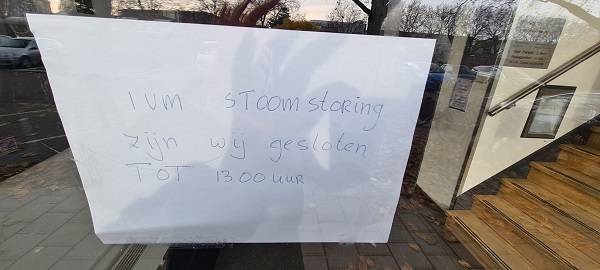 IVM STOOMSTORING
zijn wij gesloten
TOT 13.00 UUR